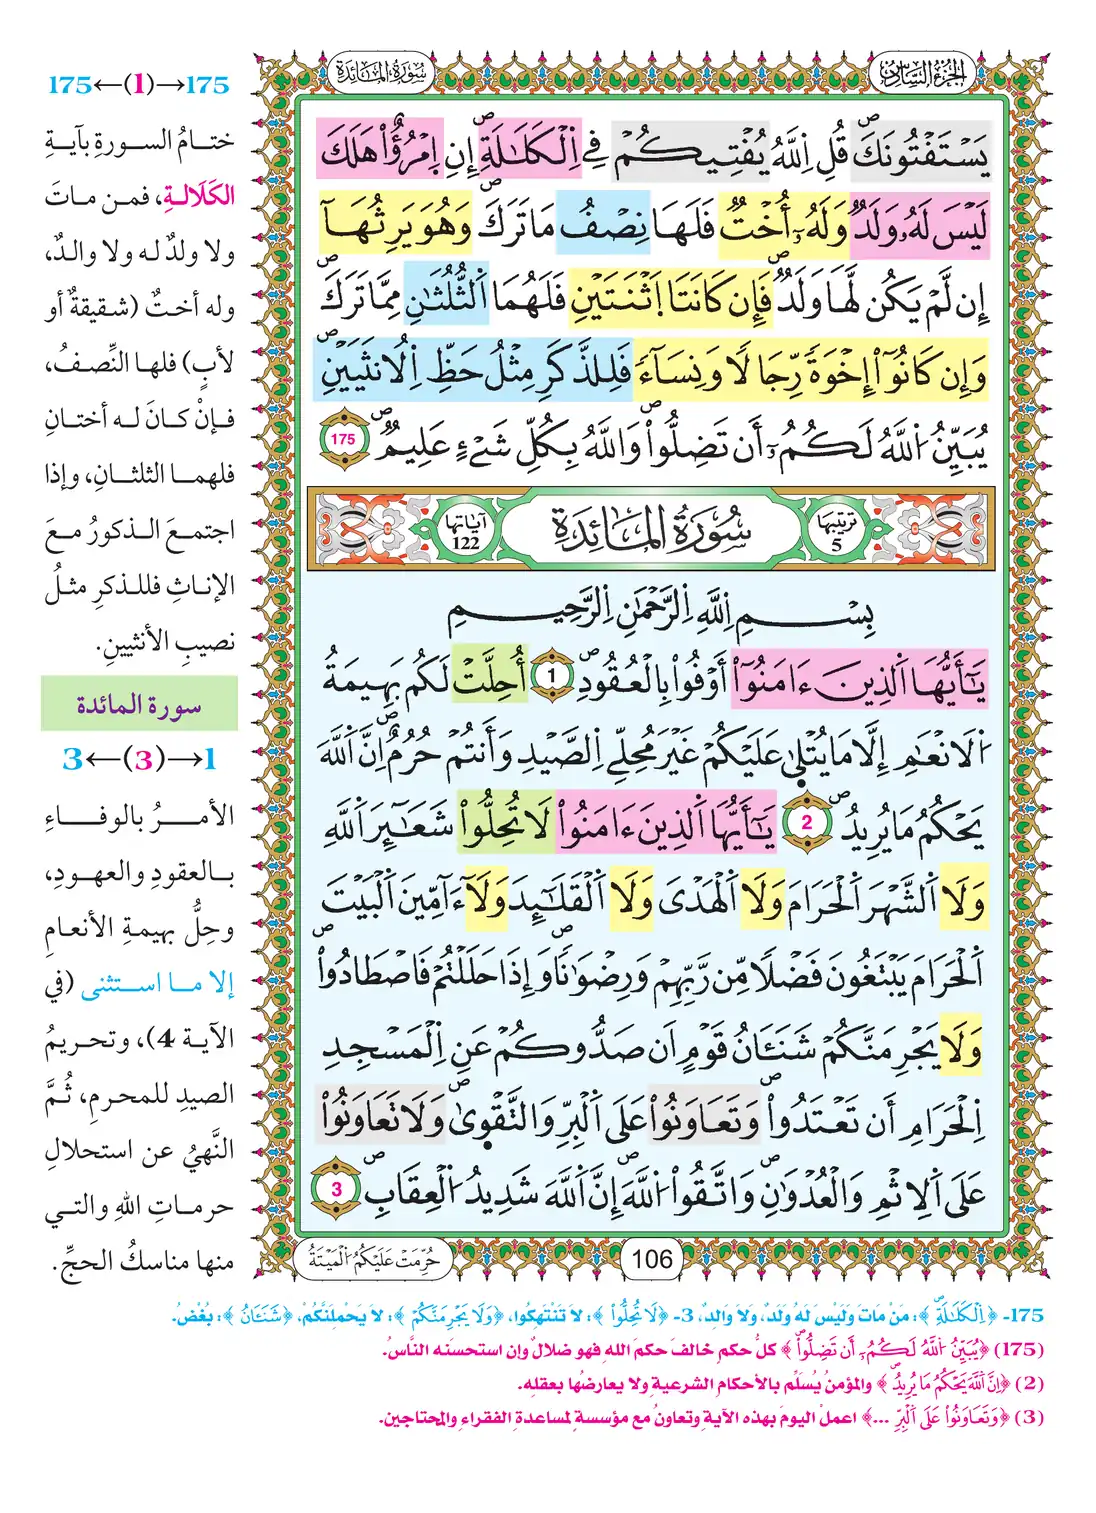 الجزء السادس
سورة المائدة
يَسْتَفْتُونَكَ قُلِ اِ۬للَّهُ يُفْتِيكُمْ فِے اِ۬لْكَلَٰلَةِ إِنِ اِ۪مْرُؤٌاْ هَلَكَ
لَيْسَ لَهُۥ وَلَدٌ وَلَهُۥٓ أُخْتٌ فَلَهَا نِصْفُ مَا تَرَكَ وَهُوَ يَرِثُهَآ
إِن لَّمْ يَكُن لَّهَا وَلَدٌ فَإِن كَانَتَا اَ۪ثْنَتَيْنِ فَلَهُمَا اَ۬لثُّلُثَٰنِ مِمَّا تَرَكَ
وَإِن كَانُوٓاْ إِخْوَةً رِّجَالًا وَنِسَآءً فَلِلذَّكَرِ مِثْلُ حَظِّ اِ۬لُانثَيَيْنِ
يُبَيِّنُ اُ۬للَّهُ لَكُمُۥٓ أَن تَضِلُّواْ وَاللَّهُ بِكُلِّ شَےْءٍ عَلِيمٌ 175
ترتيبها 5
سُورَةُ المَائدَةِ
آياتها 122
بِسْمِ اِ۬للَّهِ اِ۬لرَّحْمَٰنِ اِ۬لرَّحِيمِ
يَٰٓأَيُّهَا اَ۬لذِينَ ءَامَنُوٓاْ أَوْفُواْ بِالْعُقُودِ 1 أُحِلَّتْ لَكُم بَهِيمَةُ
اُ۬لَانْعَٰمِ إِلَّا مَا يُتْل۪ىٰ عَلَيْكُمْ غَيْرَ مُحِلِّے اِ۬لصَّيْدِ وَأَنتُمْ حُرُمٌ اِنَّ اَ۬للَّهَ
يَحْكُمُ مَا يُرِيدُ 2 يَٰٓأَيُّهَا اَ۬لذِينَ ءَامَنُواْ لَا تُحِلُّواْ شَعَٰٓئِرَ اَ۬للَّهِ
وَلَا اَ۬لشَّهْرَ اَ۬لْحَرَامَ وَلَا اَ۬لْهَدْىَ وَلَا اَ۬لْقَلَٰٓئِدَ وَلَآ ءَآمِّينَ اَ۬لْبَيْتَ
اَ۬لْحَرَامَ يَبْتَغُونَ فَضْلًا مِّن رَّبِّهِمْ وَرِضْوَٰنًا وَإِذَا حَلَلْتُمْ فَاصْطَادُواْ
وَلَا يَجْرِمَنَّكُمْ شَنَـَٔانُ قَوْمٍ اَن صَدُّوكُمْ عَنِ اِ۬لْمَسْجِدِ
اِ۬لْحَرَامِ أَن تَعْتَدُواْ وَتَعَاوَنُواْ عَلَى اَ۬لْبِرِّ وَالتَّقْو۪ىٰ وَلَا تَعَاوَنُواْ
عَلَى اَ۬لِاثْمِ وَالْعُدْوَٰنِ وَاتَّقُواْ اُ۬للَّهَ إِنَّ اَ۬للَّهَ شَدِيدُ اُ۬لْعِقَابِ 3
106
حُرِّمَتْ عَلَيْكُمُ اُ۬لْمَيْتَةُ
175←(1)→175
ختـامُ السـورةِ بآيـةِ
الكَلَالـةِ، فمـن مـاتَ
ولا ولدٌ لـه ولا والـدٌ،
وله أختٌ (شقيقةٌ أو
لأبٍ) فلهـا النِّصـفُ،
فـإنْ كـانَ لـه أختـانِ
فلهمـا الثلثـانِ، وإذا
اجتمـعَ الـذكورُ مـعَ
الإنـاثِ فللـذكرِ مثـلُ
نصيبِ الأنثيينِ.
سورة المائدة
3←(3)→1
الأمـــرُ بالوفـــاءِ
بـالعقودِ والعهـودِ،
وحِلُّ بهيمةِ الأنعامِ
إلا مـا اسـتثنى (في
الآية 4)، وتحـريمُ
الصيدِ للمحرمِ، ثُـمَّ
النَّهيُ عن استحلالِ
حرمـاتِ اللهِ والتـي
منها مناسكُ الحجِّ.
175- ﴿اِ۬لْكَلَٰلَةِ﴾: مَنْ مَاتَ وَلَيْسَ لَهُ وَلَدٌ، وَلَا وَالِدٌ، 3- ﴿لَا تُحِلُّواْ﴾: لَا تَنْتَهِكُوا، ﴿وَلَا يَجْرِمَنَّكُمْ﴾: لَا يَحْمِلَنَّكُمْ، ﴿شَنَـَٔانُ﴾: بُغْضُ.
(175) ﴿يُبَيِّنُ اُ۬للَّهُ لَكُمُۥٓ أَن تَضِلُّواْ﴾ كلُّ حكمٍ خالفَ حكمَ اللهِ فهو ضلالٌ وإن استحسنَه النَّاسُ.
(2) ﴿إِنَّ اَ۬للَّهَ يَحْكُمُ مَا يُرِيدُ﴾ والمؤمنُ يُسَلِّم بالأحكامِ الشرعيةِ ولا يعارضُها بعقلِه.
(3) ﴿وَتَعَاوَنُواْ عَلَى اَ۬لْبِرِّ ...﴾ اعملْ اليومَ بهذه الآيةِ وتعاونْ مع مؤسسةٍ لمساعدةِ الفقراءِ والمحتاجين.